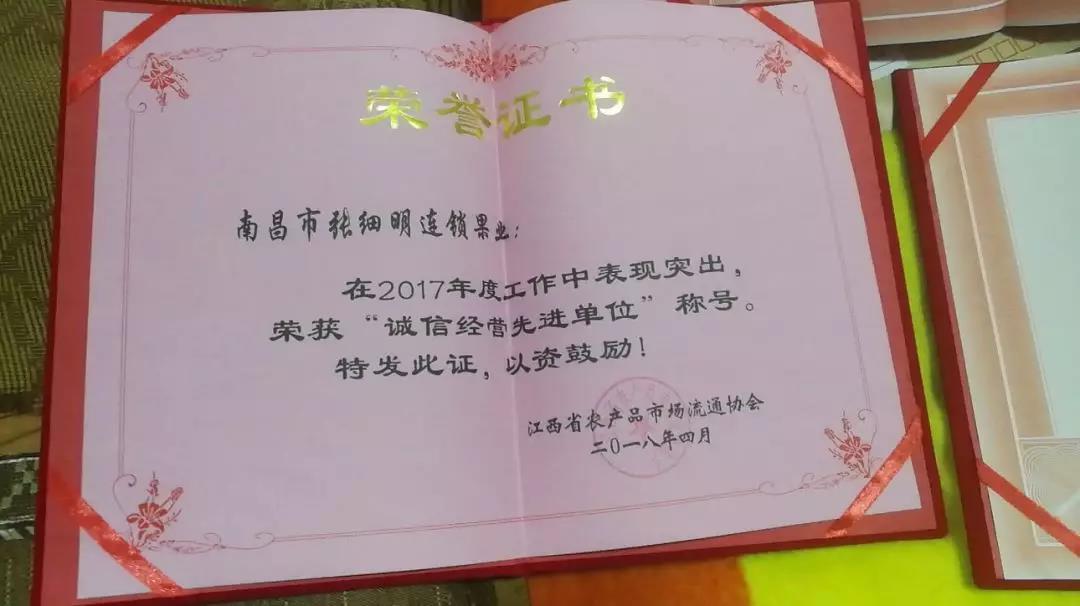 荣誉证书
南昌市张细明连锁果业：
在2017年度工作中表现突出，
荣获“诚信经营先进单位”称号。
特发此证，以资鼓励！
江西省农产品市场流通协会
二〇一八年四月